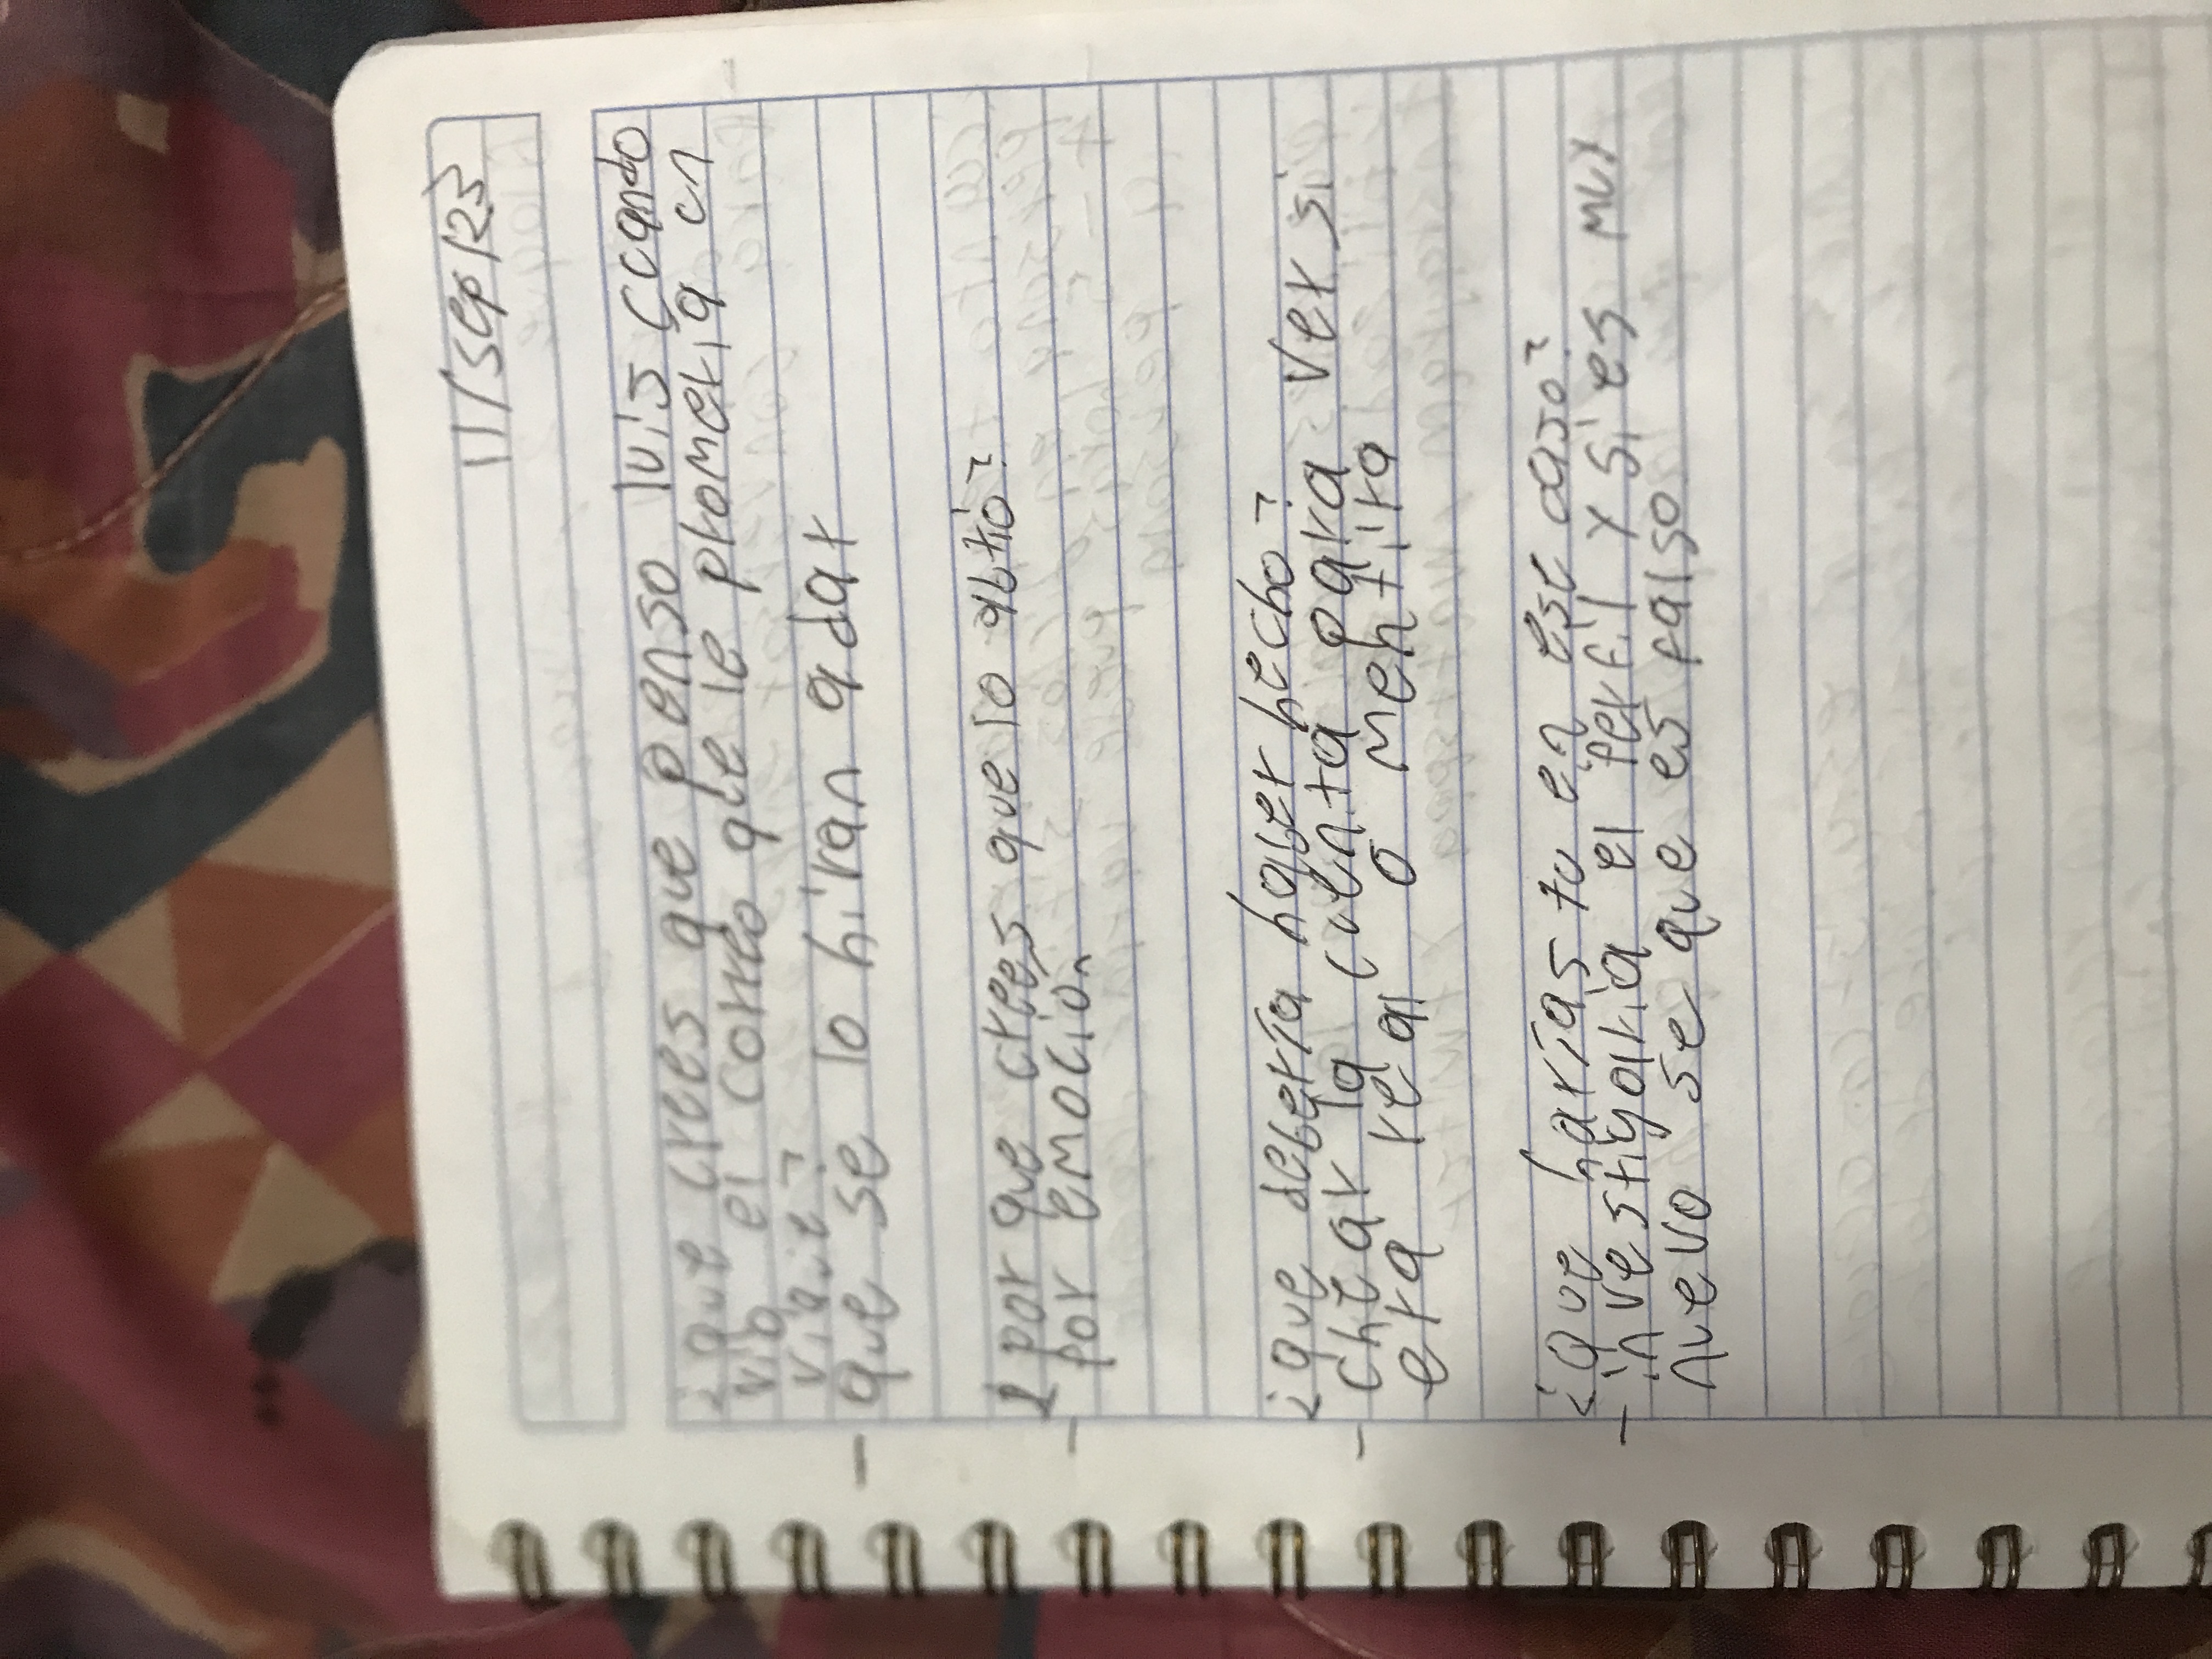 11/sep/23
¿que crees que penso luis cuando
vio el correo que le promeria un
viaje?
- que se lo hiran a dar
¿por que crees que lo abrio?
- por emocion
¿que deberia haber hecho?
- chear la cuenta para ver si
era real o mentira
¿que harias tu en ese caso?
- investigaria el perfil y si es muy
nuevo se que es falso